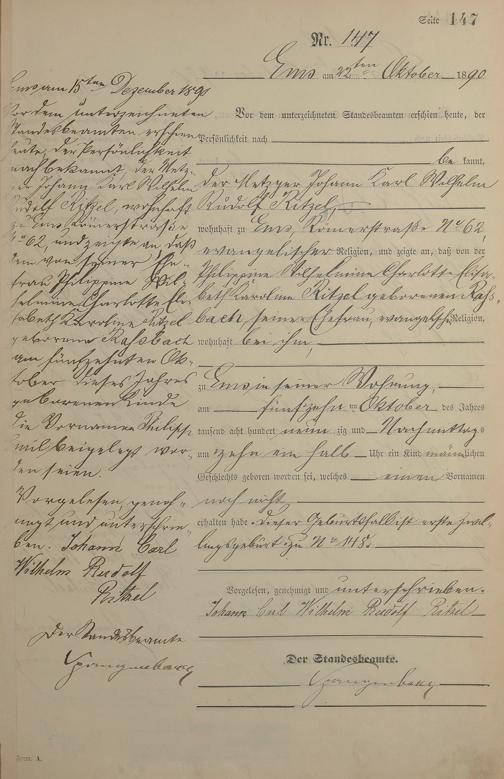 Seite 147
Nr. 147
Ems am 22ten Oktober 1890
Vor dem unterzeichneten Standesbeamten erschien heute, der
Persönlichkeit nach
be kannt,
der Metzger Johann Karl Wilhelm
Rudolf Ritzel
wohnhaft zu Ems, Römerstraße No 62
evangelischer Religion, und zeigte an, daß von der
Philippine Wilhelmine Charlotte Elisa-
beth Karoline Ritzel geborenen Raß-
bach seiner Ehefrau, evangelischer Religion,
wohnhaft bei ihm,
zu Ems, in seiner Wohnung,
am fünfzehn ten Oktober des Jahres
tausend acht hundert neun zig und Nachmittags
um zehn ein halb Uhr ein Kind männlichen
Geschlechts geboren worden sei, welches einen Vornamen
noch nicht
erhalten habe. Dieser Geburtsfall ist erste Zwil-
lingsgeburt zu No 148.
Vorgelesen, genehmigt und unterschrieben.
Johann Carl Wilhelm Rudolf Ritzel
Der Standesbeamte.
Spangenberg
Ems am 15ten Dezember 1890
Vor dem unterzeichneten
Standesbeamten erschien
heute, der Persönlichkeit
nach bekannt, der Metz-
ger Johann Karl Wilhelm
Rudolf Ritzel, wohnhaft
zu Ems, Römerstraße
No 62, und zeigte an, daß
dem von seiner Ehe-
frau Philippine Wil-
helmine Charlotte Eli-
sabeth Karoline Ritzel
geborene Raßbach
am fünfzehnten Ok-
tober dieses Jahres
geborenen Kinde
die Vornamen
beigelegt wor-
den seien.
Vorgelesen, geneh-
migt und unterschrie-
ben. Johann Carl
Wilhelm Rudolf
Ritzel
Der Standesbeamte
Spangenberg
Form. A.